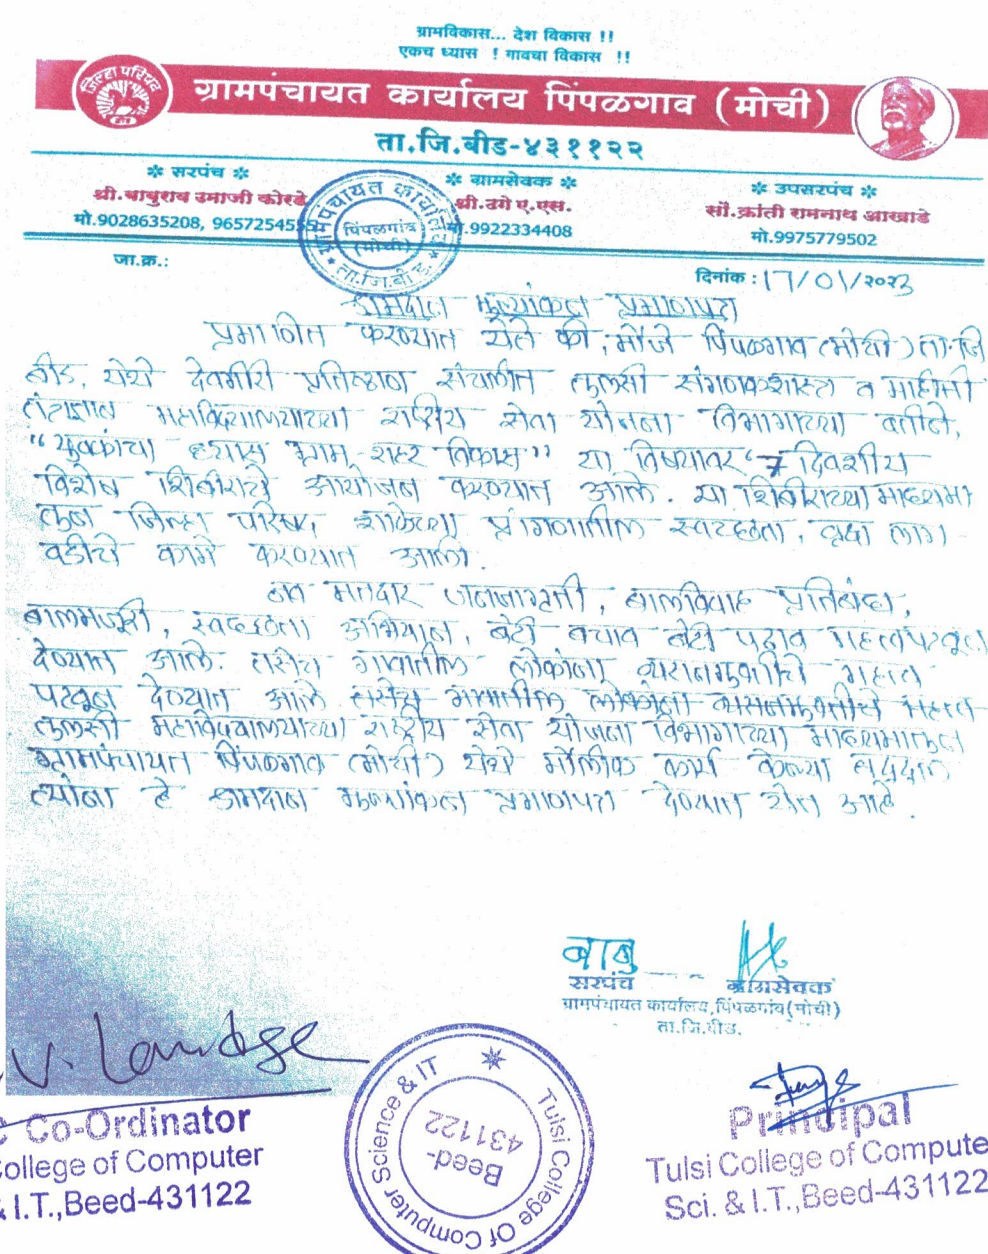 ग्रामविकास... देश विकास !!
एकच ध्यास ! गावचा विकास !!
जिल्हा परिषद
ग्रामपंचायत कार्यालय पिंपळगाव (मोची)
ता.जि.बीड-४३११२२
❇ सरपंच ❇
श्री.बाबुराव उमाजी कोरडे
मो.9028635208, 965725455
❇ ग्रामसेवक ❇
श्री.उगे ए.एस.
मो.9922334408
❇ उपसरपंच ❇
सौ.क्रांती रामनाथ आखाडे
मो.9975779502
ग्रामपंचायत कार्यालय
पिंपळगांव
(मोची)
ता.जि.बीड.
जा.क्र.:
दिनांक : 17/01/२०२3
श्रमदान मुल्यांकन प्रमाणपत्र
प्रमाणीत करण्यात येते की, मौजे पिंपळगाव (मोची) ता.जि
बीड, येथे देवगीरी प्रतिष्ठान संचलीत तुलसी संगणकशास्त्र व माहीती
तंत्रज्ञान महाविद्यालयाच्या राष्ट्रीय सेवा योजना विभागाच्या वतीने,
"युवकांचा ध्यास ग्राम, शहर विकास" या विषयावर 7 दिवशीय
विशेष शिबीराचे आयोजन करण्यात आले. या शिबीराच्या माध्यमा
तून जिल्हा परिषद शाळेच्या प्रांगणातील स्वच्छता, वृक्ष लाग
वडीचे कामे करण्यात आली.
नव मतदार जनजागृती, बालविवाह प्रतिबंध,
बालमजूरी, स्वच्छता अभियान, बेटी बचाव बेटी पढाव महत्व पटवून
देण्यात आले. तसेच गावातील लोकांना व्यसनमुक्तीचे महत्व
पटवून देण्यात आले तसेच गावातील लोकांना व्यसनमुक्तीचे महत्व
तुलसी महाविद्यालयाच्या राष्ट्रीय सेवा योजना विभागाच्या माध्यमातून
ग्रामपंचायत पिंपळगाव (मोची) येथे मौलीक कार्य केल्या बद्दल
त्यांना हे श्रमदान मुल्यांकन प्रमाणपत्र देण्यात येत आहे.
बाबु
सरपंच ग्रामसेवक
ग्रामपंचायत कार्यालय, पिंपळगांव(मोची)
ता.जि.बीड.
Co-Ordinator
College of Computer
& I.T.,Beed-431122
Tulsi College Of Computer Science & IT
Beed-
431122
Principal
Tulsi College of Compute
Sci. & I.T.,Beed-431122